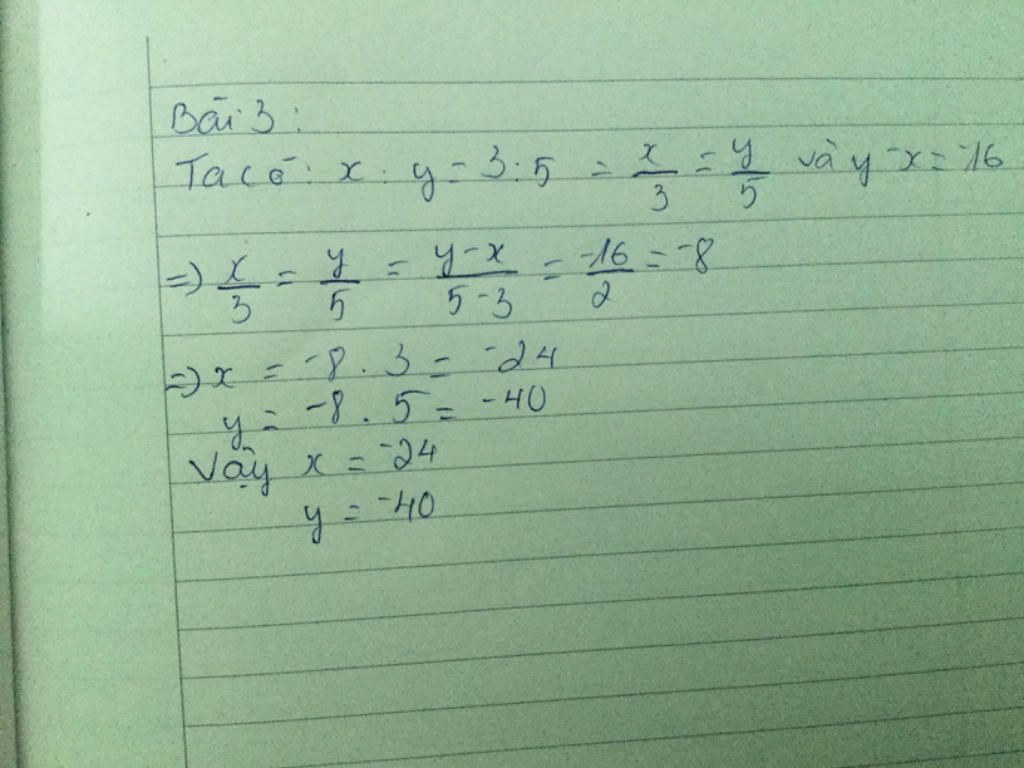 Bài 3:
Ta có: x : y = 3 : 5 = x/3 = y/5 và y - x = -16
=> x/3 = y/5 = y-x/5-3 = -16/2 = -8
=> x = -8 . 3 = -24
y = -8 . 5 = -40
Vậy x = -24
y = -40